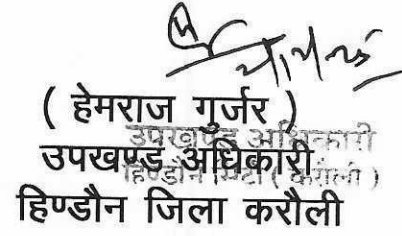 ( हेमराज गुर्जर )
उपखण्ड अधिकारी
उपखण्ड अधिकारी
हिण्डौन सिटी ( करौली )
हिण्डौन जिला करौली